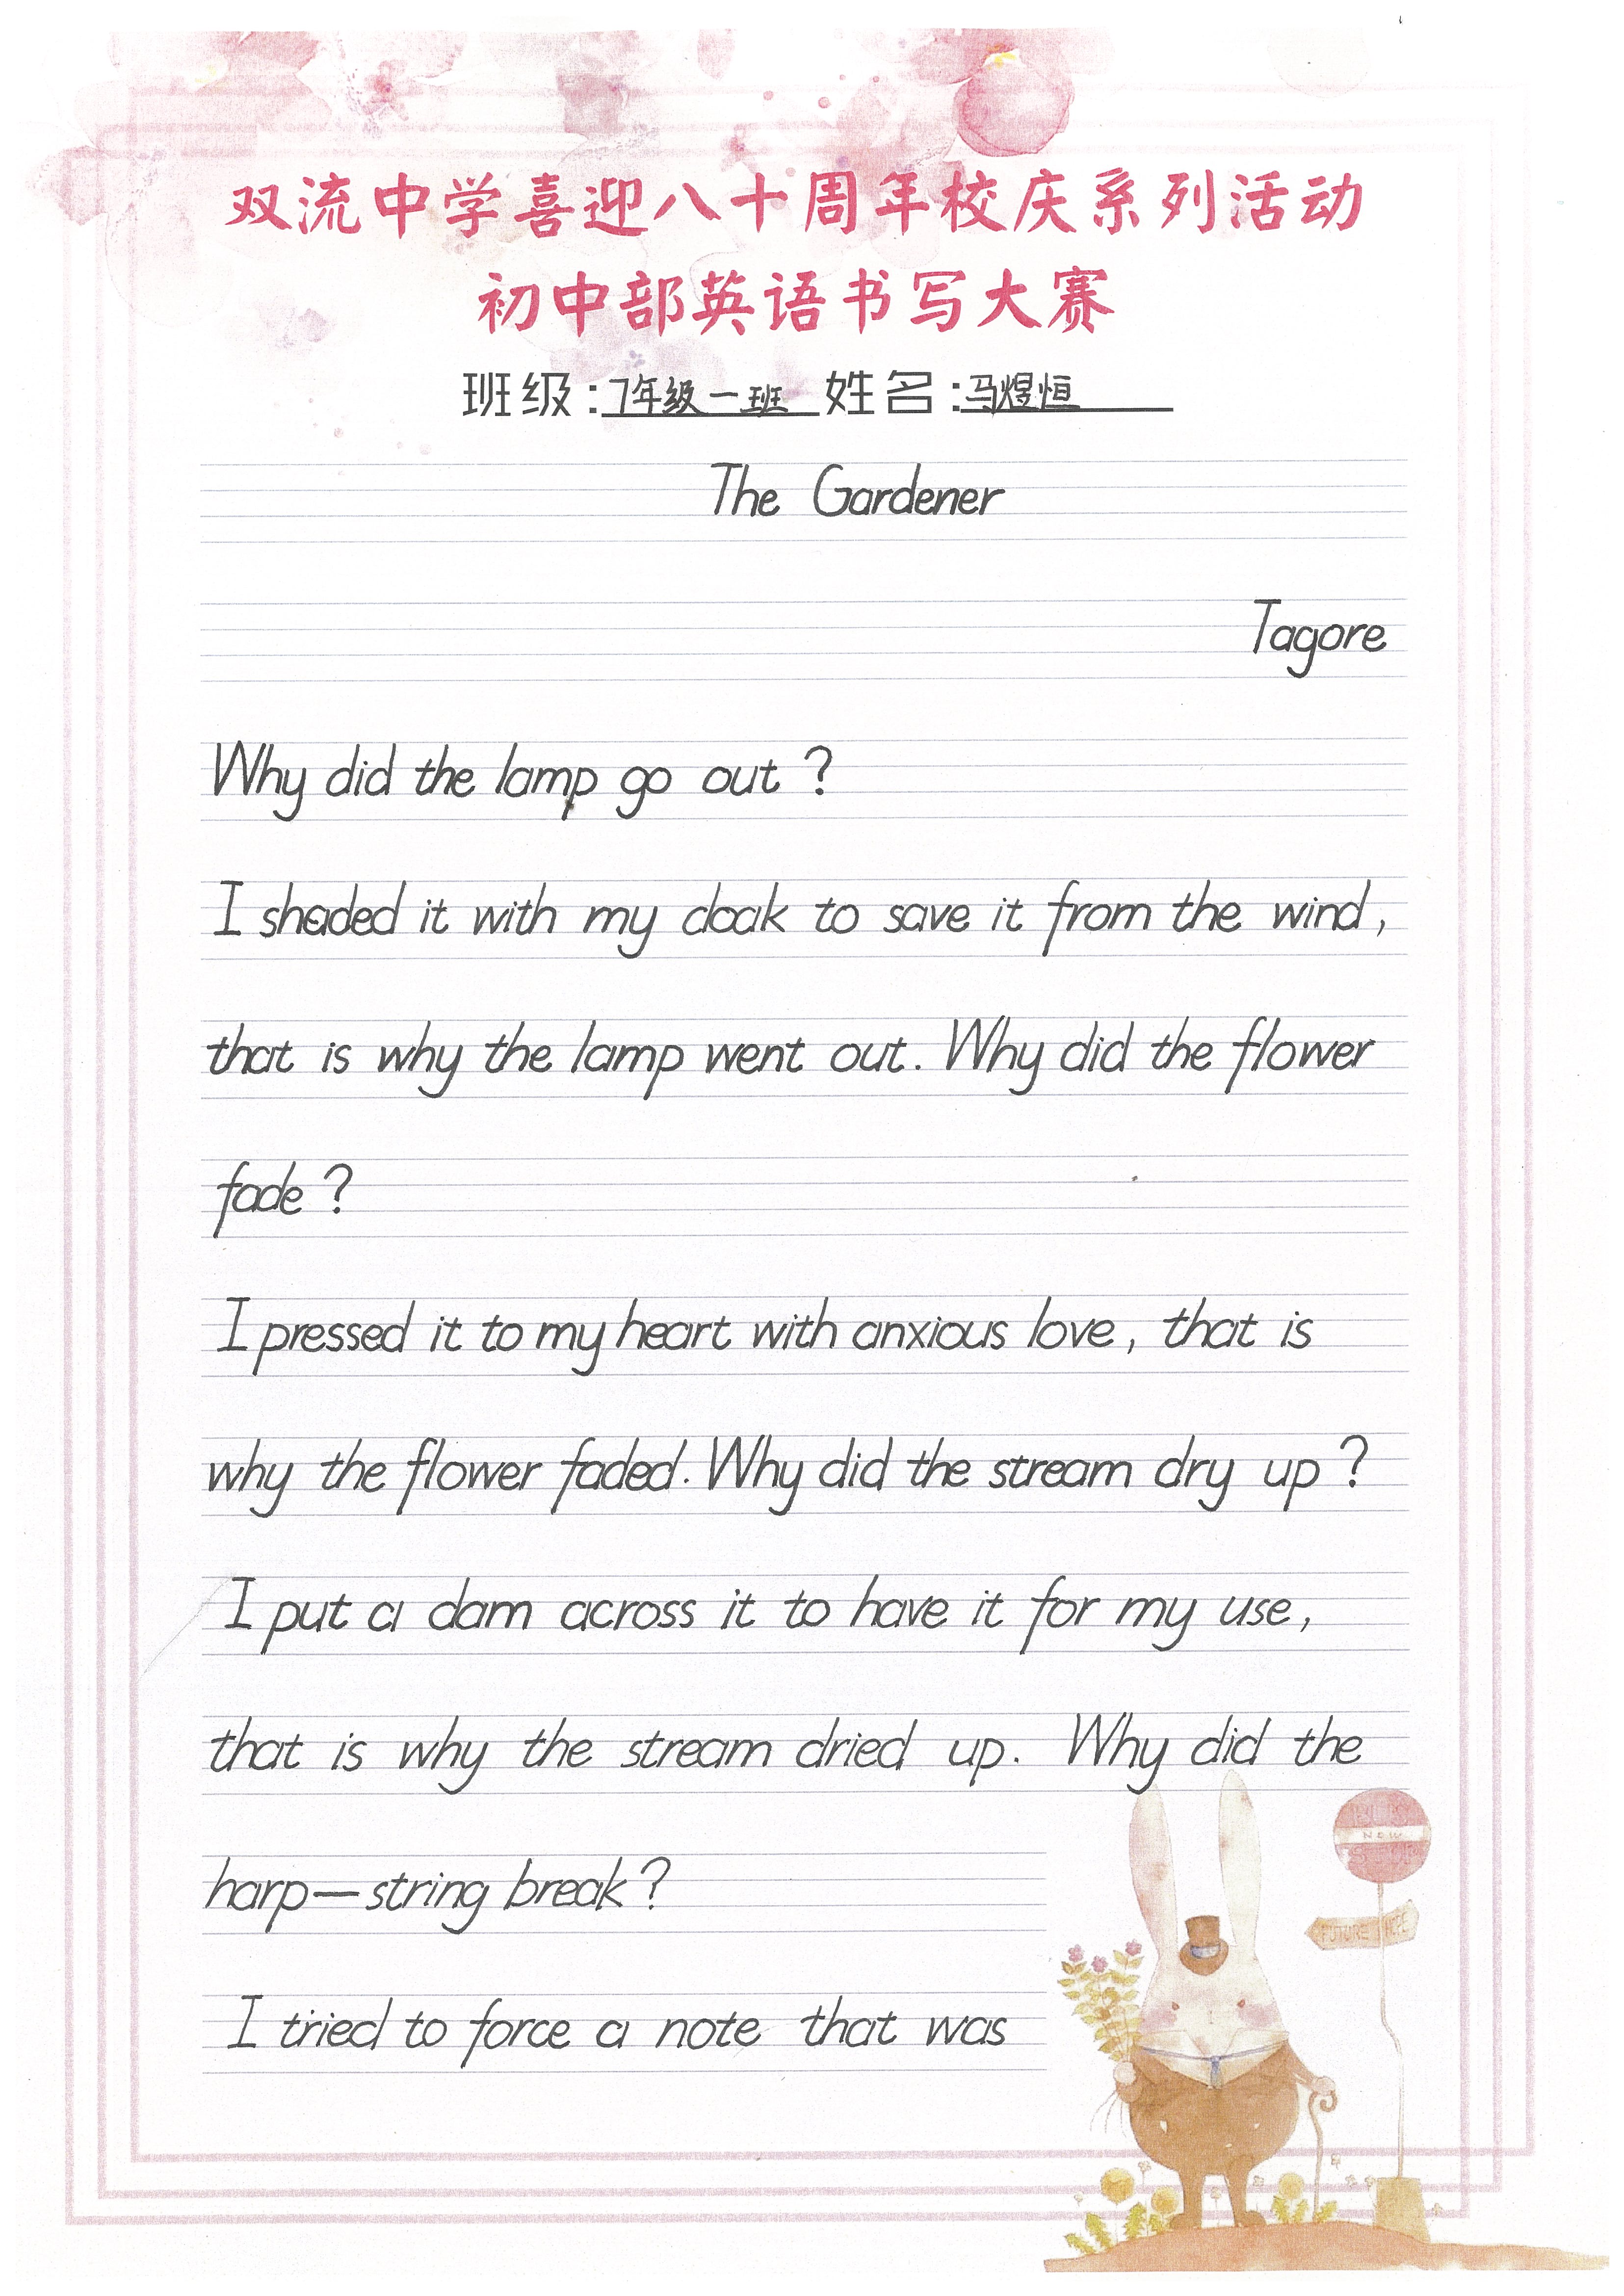 双流中学喜迎八十周年校庆系列活动
初中部英语书写大赛
班级:7年级一班 姓名:马煜恒
The Gardener
Tagore
Why did the lamp go out?
I shaded it with my cloak to save it from the wind,
that is why the lamp went out. Why did the flower
fade?
I pressed it to my heart with anxious love, that is
why the flower faded. Why did the stream dry up?
I put a dam across it to have it for my use,
that is why the stream dried up. Why did the
harp—string break?
I tried to force a note that was
BUS
NOW
FUTURE HOPE